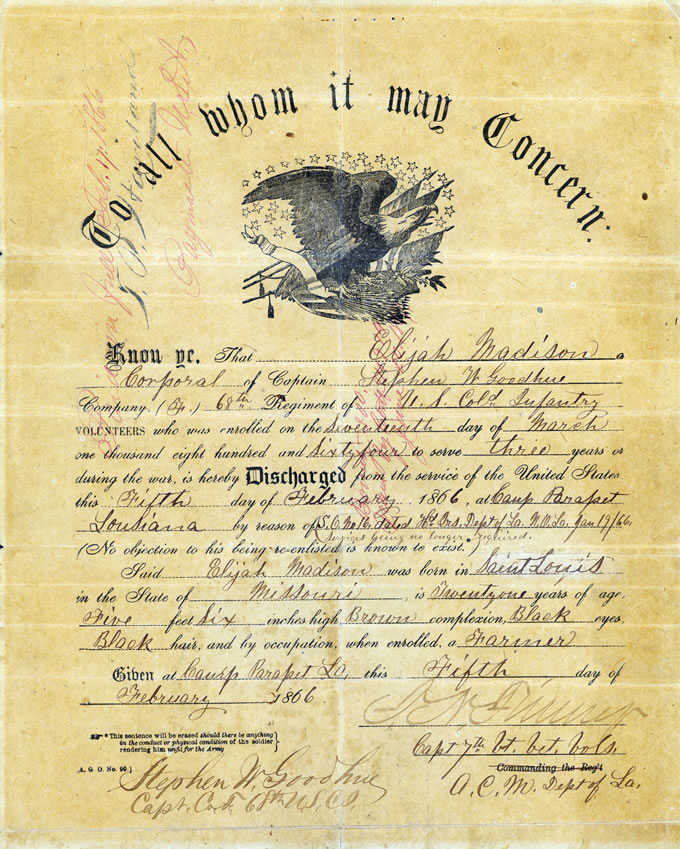 To all whom it may Concern:
Know ye, That Elijah Madison a
Corporal of Captain Stephen W. Goodhue
Company, (F,) 68th Regiment of U. S. Cold. Infantry
VOLUNTEERS who was enrolled on the Seventeenth day of March
one thousand eight hundred and Sixty four to serve three years or
during the war, is hereby Discharged from the service of the United States
this Fifth day of February, 1866, at Camp Parapet
Louisiana by reason of S.O. No 16, dated Hd. Qrs. Dept of La. N.O. La. Jan 19/66.
Services being no longer required.
(No objection to his being re-enlisted is known to exist.)
Said Elijah Madison was born in Saint Louis
in the State of Missouri, is Twenty one years of age,
Five feet Six inches high Brown complexion, Black eyes,
Black hair, and by occupation, when enrolled, a Farmer
Given at Camp Parapet La. this Fifth day of
February 1866
* This sentence will be erased should there be anything
in the conduct or physical condition of the soldier
rendering him unfit for the Army
Capt 7th Vt. Vet. Vols.
Commanding the Reg't
A. G. O. No. 99.]
A. C. M. Dept of La.
Stephen W. Goodhue
Capt. Co. F. 68th U.S.C.I.